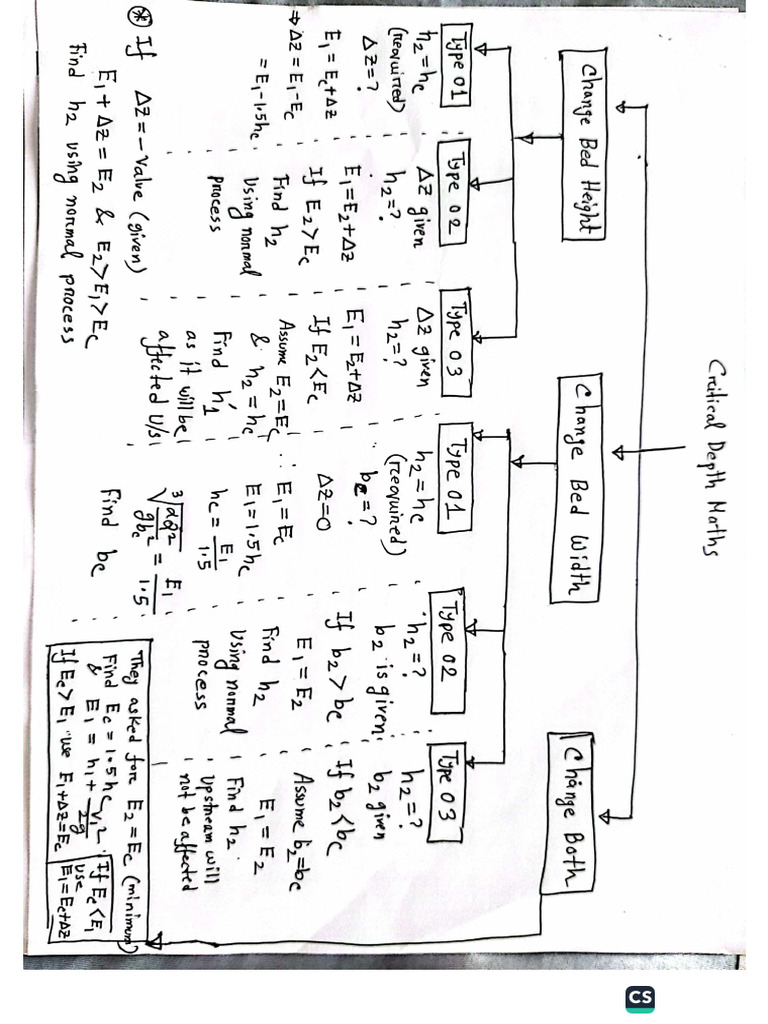 Critical Depth Maths
Change Bed Height
Change Bed Width
Change Both
Type 01
h2 = hc
(required)
Δz = ?
E1 = Ec + Δz
⇒ Δz = E1 - Ec
= E1 - 1.5hc
Type 02
Δz given
h2 = ?
E1 = E2 + Δz
If E2 > Ec
Find h2
Using normal
process
Type 03
Δz given
h2 = ?
E1 = E2 + Δz
If E2 < Ec
Assume E2 = Ec
& h2 = hc
Find h1'
as it will be
affected U/s
Type 01
h2 = hc
(required)
bc = ?
Δz = 0
∴ E1 = Ec
E1 = 1.5hc
hc = E1/1.5
∛(αQ²/gbc²) = E1/1.5
Find bc
Type 02
h2 = ?
b2 is given
If b2 > bc
E1 = E2
Find h2
Using normal
process
Type 03
h2 = ?
b2 given
If b2 < bc
Assume b2 = bc
E1 = E2
Find h2.
Upstream will
not be affected
⊛ If Δz = - value (given)
E1 + Δz = E2 & E2 > E1 > Ec
Find h2 using normal process
They asked for E2 = Ec (minimum)
Find Ec = 1.5hc
& E1 = h1 + V1²/2g
If Ec > E1 use E1 + Δz = Ec
If Ec < E1
use
E1 = Ec + Δz
CS